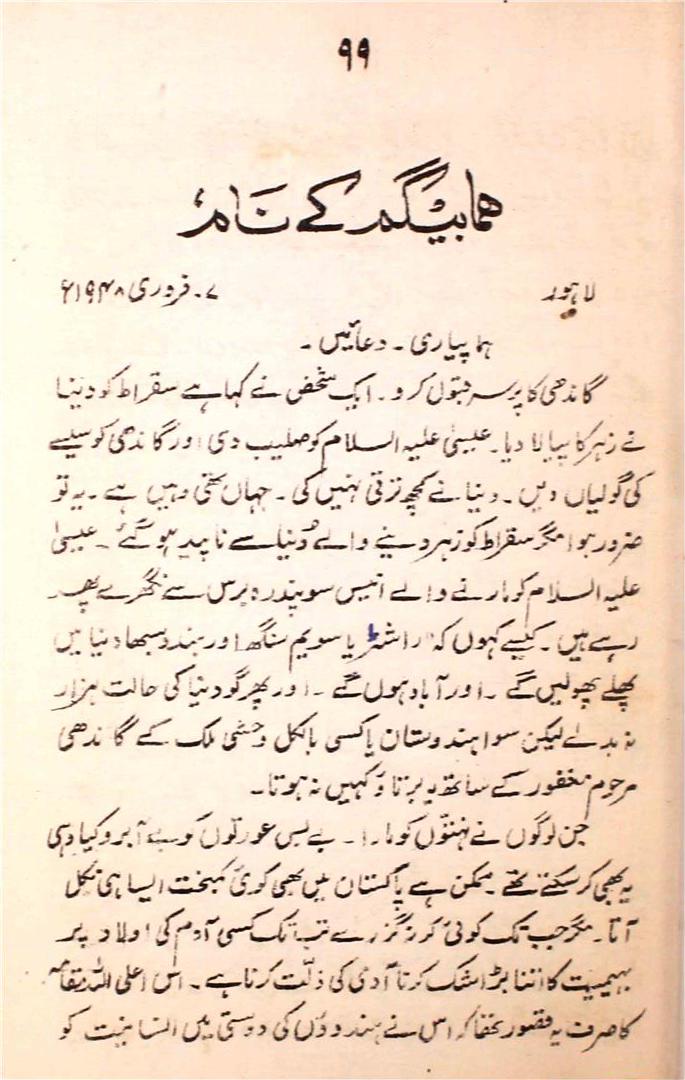 ۹۹
ہما بیگم کے نام
لاہور ۷۔ فروری ۱۹۴۸ء
ہما پیاری۔ دعائیں۔
گاندھی کا پرسہ قبول کرو۔ ایک شخص نے کہا ہے سقراط کو دنیا
نے زہر کا پیالا دیا۔ عیسیٰ علیہ السلام کو صلیب دی اور گاندھی کو سیسے
کی گولیاں دیں۔ دنیا نے کچھ ترقی نہیں کی۔ جہاں تھی وہیں ہے۔ یہ تو
ضرور ہوا مگر سقراط کو زہر دینے والے دُنیا سے ناپید ہو گئے۔ عیسیٰ
علیہ السلام کو مارنے والے انیس سو پندرہ برس سے نگھرے پھر
رہے ہیں۔ کیسے کہوں کہ راشٹریا سویم سنگھ اور ہندو سبھا دنیا میں
پھلے پھولیں گے۔ اور آباد ہوں گے۔ اور پھر گو دنیا کی حالت ہزار
نہ بدلے لیکن سوا ہندوستان یا کسی بالکل وحشی ملک کے گاندھی
مرحوم مغفور کے ساتھ یہ برتاؤ کہیں نہ ہوتا۔
جن لوگوں نے نہتوں کو مارا۔ بے بس عورتوں کو بے آبرو کیا وہی
یہ بھی کر سکتے تھے۔ ممکن ہے پاکستان میں بھی کوئی کمبخت ایسا ہی نکل
آتا۔ مگر جب تک کوئی کر نہ گزرے تب تک کسی آدم کی اولاد پر
بہیمیت کا اتنا بڑا شک کرنا آدمی کی ذلّت کرنا ہے۔ اس اعلی اللہ مقامہ
کا صرف یہ قصور تھا کہ اس نے ہندوؤں کی دوستی میں انسانیت کو